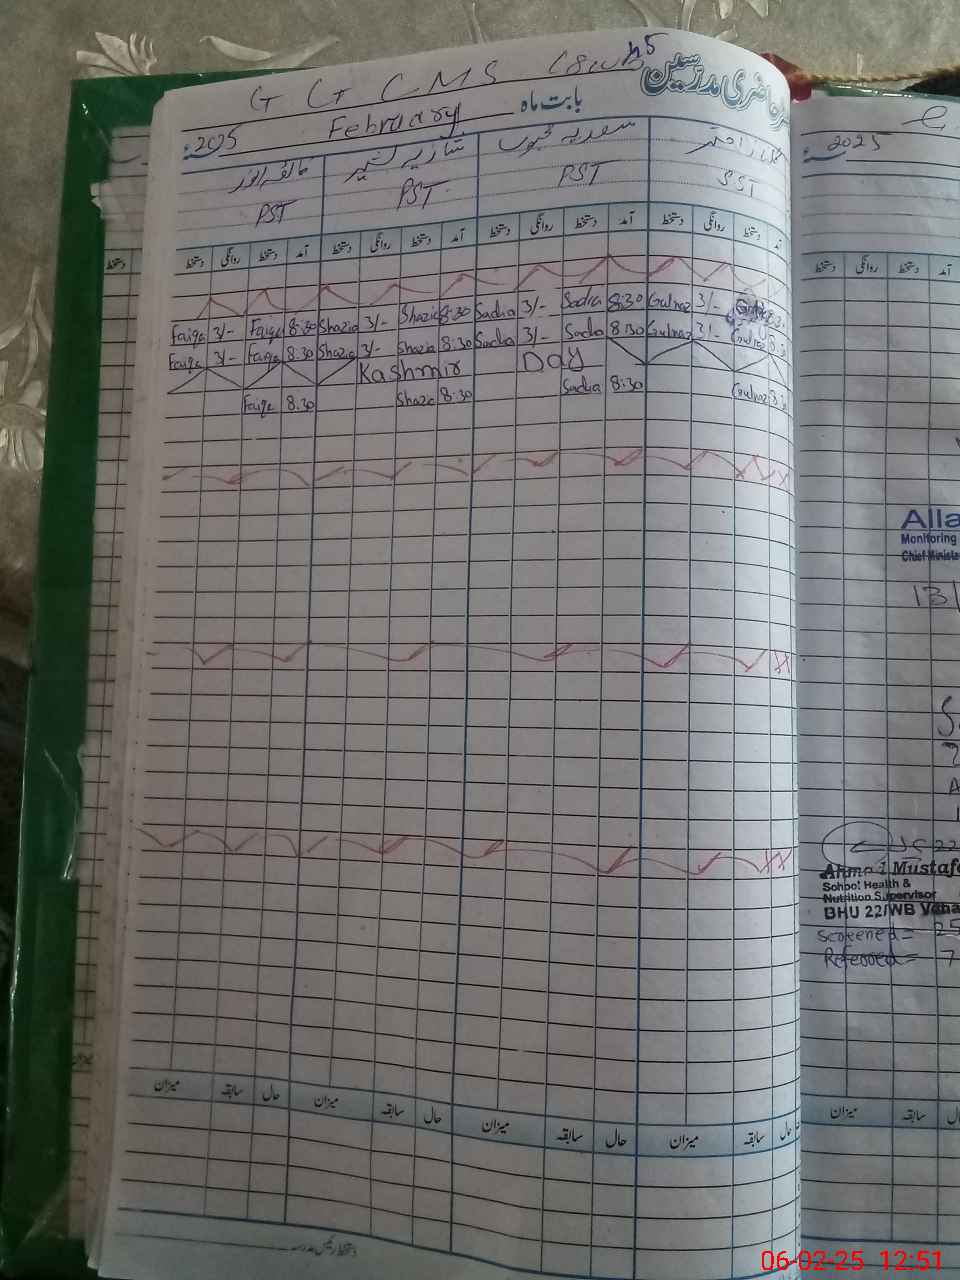 G G C M S 18 W B
حاضری مدرسین
بابت ماہ February 2025ء
گلناز اختر سعدیہ محبوب شازیہ بشیر فائقہ انور
SST PST PST PST
آمد دستخط روانگی دستخط آمد دستخط روانگی دستخط آمد دستخط روانگی دستخط آمد دستخط روانگی دستخط
Faiqa 3/- Faiqa 8:30 Shazia 3/- Shazia 8:30 Sadia 3/- Sadia 8:30 Gulnaz 3/- 8:30
Faiqa 3/- Faiqa 8:30 Shazia 3/- Shazia 8:30 Sadia 3/- Sadia 8:30 Gulnaz 3/- Gulnaz 8:30
Kashmir Day
Faiqa 8:30 Shazia 8:30 Sadia 8:30 Gulnaz 8:30
حال سابقہ میزان حال سابقہ میزان حال سابقہ میزان حال سابقہ میزان
دستخط رئیس مدرسہ
2025ء
آمد دستخط روانگی دستخط
Monitoring
13/
Ahmad Mustafa
School Health &
Nutrition Supervisor
BHU 22/WB
Screened = 25
Referred = 7
حال سابقہ میزان
دستخط
06-02-25 12:51